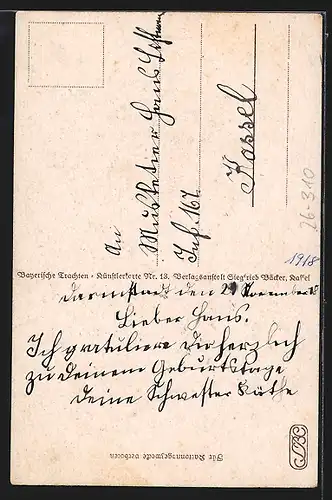 An
Musketier Hans
Inf. 167.
Kassel
26-310
1918
Bayerische Trachten · Künstlerkarte Nr. 13. Verlagsanstalt Siegfried Bäcker, Kassel
Darmstadt den 2 November
Lieber Hans.
Ich gratuliere Dir herzlich
zu Deinem Geburtstage
Deine Schwester Käthe
Für Kartonnagezwecke verboten